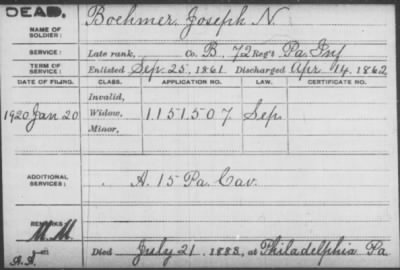 DEAD.
NAME OF SOLDIER: Boehmer, Joseph N.
SERVICE: Late rank, Co. B, 72 Reg't Pa Inf
TERM OF SERVICE: Enlisted Sep. 25, 1861, Discharged Apr 14, 1862
DATE OF FILING. CLASS. APPLICATION NO. LAW. CERTIFICATE NO.
Invalid,
1920 Jan 20 Widow, 1151507 Sep
Minor,
ADDITIONAL SERVICES: A. 15 Pa Cav.
REMARKS:
Died July 21 1883, at Philadelphia Pa